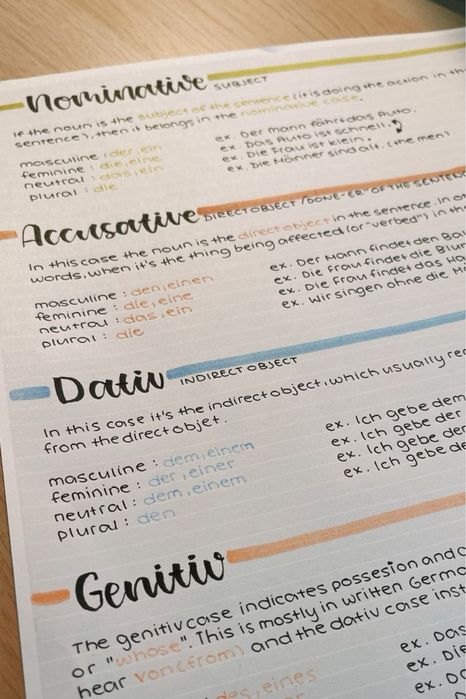 nominative SUBJECT
If the noun is the subject of the sentence (it is doing the action in the
sentence), then it belongs in the nominative case.
masculine : der, ein
feminine : die, eine
neutral : das, ein
plural : die
ex. Der Mann fährt das Auto.
ex. Das Auto ist schnell.
ex. Die Frau ist klein.
ex. Die Männer sind alt. (the men)
Accusative DIRECT OBJECT / "DONE-ER" OF THE SENTENCE
In this case the noun is the direct object in the sentence. In
words, when it's the thing being affected (or "verbed") in
masculine : den, einen
feminine : die, eine
neutral : das, ein
plural : die
ex. Der Mann findet den
ex. Die Frau findet die
ex. Die Frau findet das
ex. Wir singen ohne die
Dativ INDIRECT OBJECT
In this case it's the indirect object, which usually
from the direct objet.
masculine : dem, einem
feminine : der, einer
neutral : dem, einem
plural : den
ex. Ich gebe dem
ex. Ich gebe der
ex. Ich gebe
ex. Ich gebe
Genitiv
The genitiv case indicates possesion and
or "whose". This is mostly in written
hear von (from) and the dativ case
des, eines
ex. Das
ex. Die
ex.